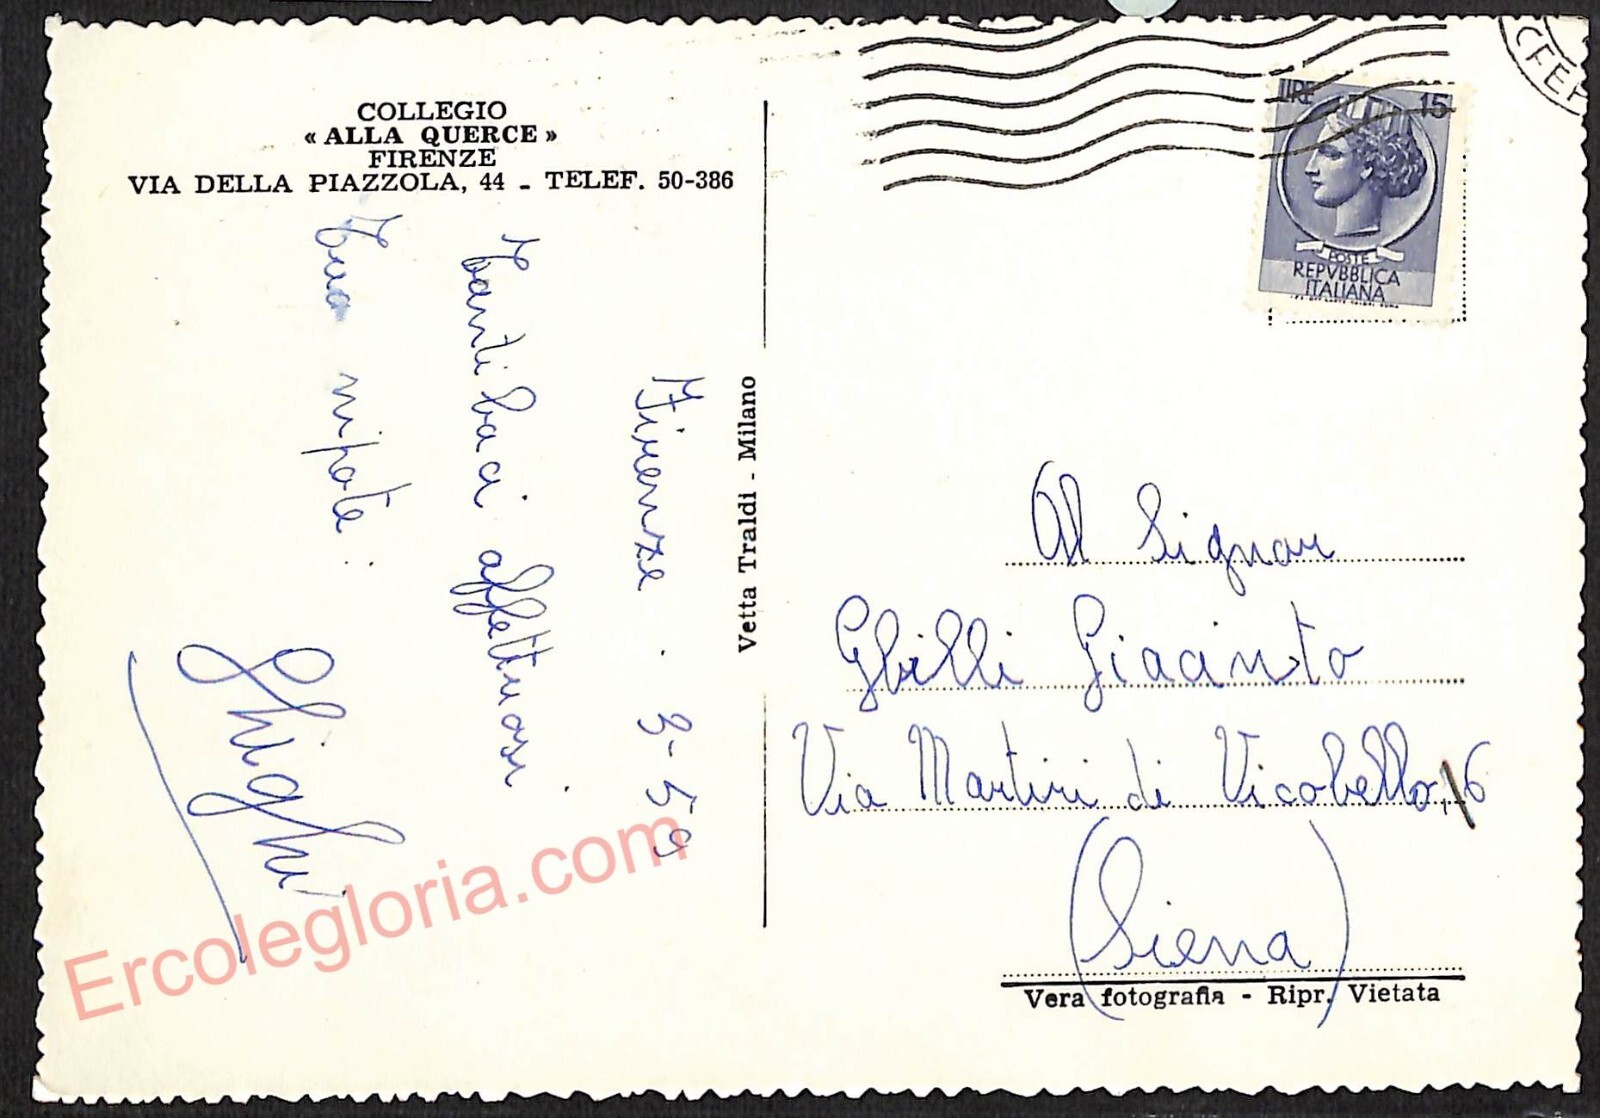 COLLEGIO
« ALLA QUERCE »
FIRENZE
VIA DELLA PIAZZOLA, 44 - TELEF. 50-386
Firenze . 3-59
Tanti baci affettuosi.
Tuo nipote.
Ghighi
Vetta Traldi - Milano
LIRE 15
POSTE
REPVBBLICA
ITALIANA
Al Signor
Ghilli Giacinto
Via Martiri di Vicobello, 6
(Siena)
Vera fotografia - Ripr. Vietata
Ercolegloria.com